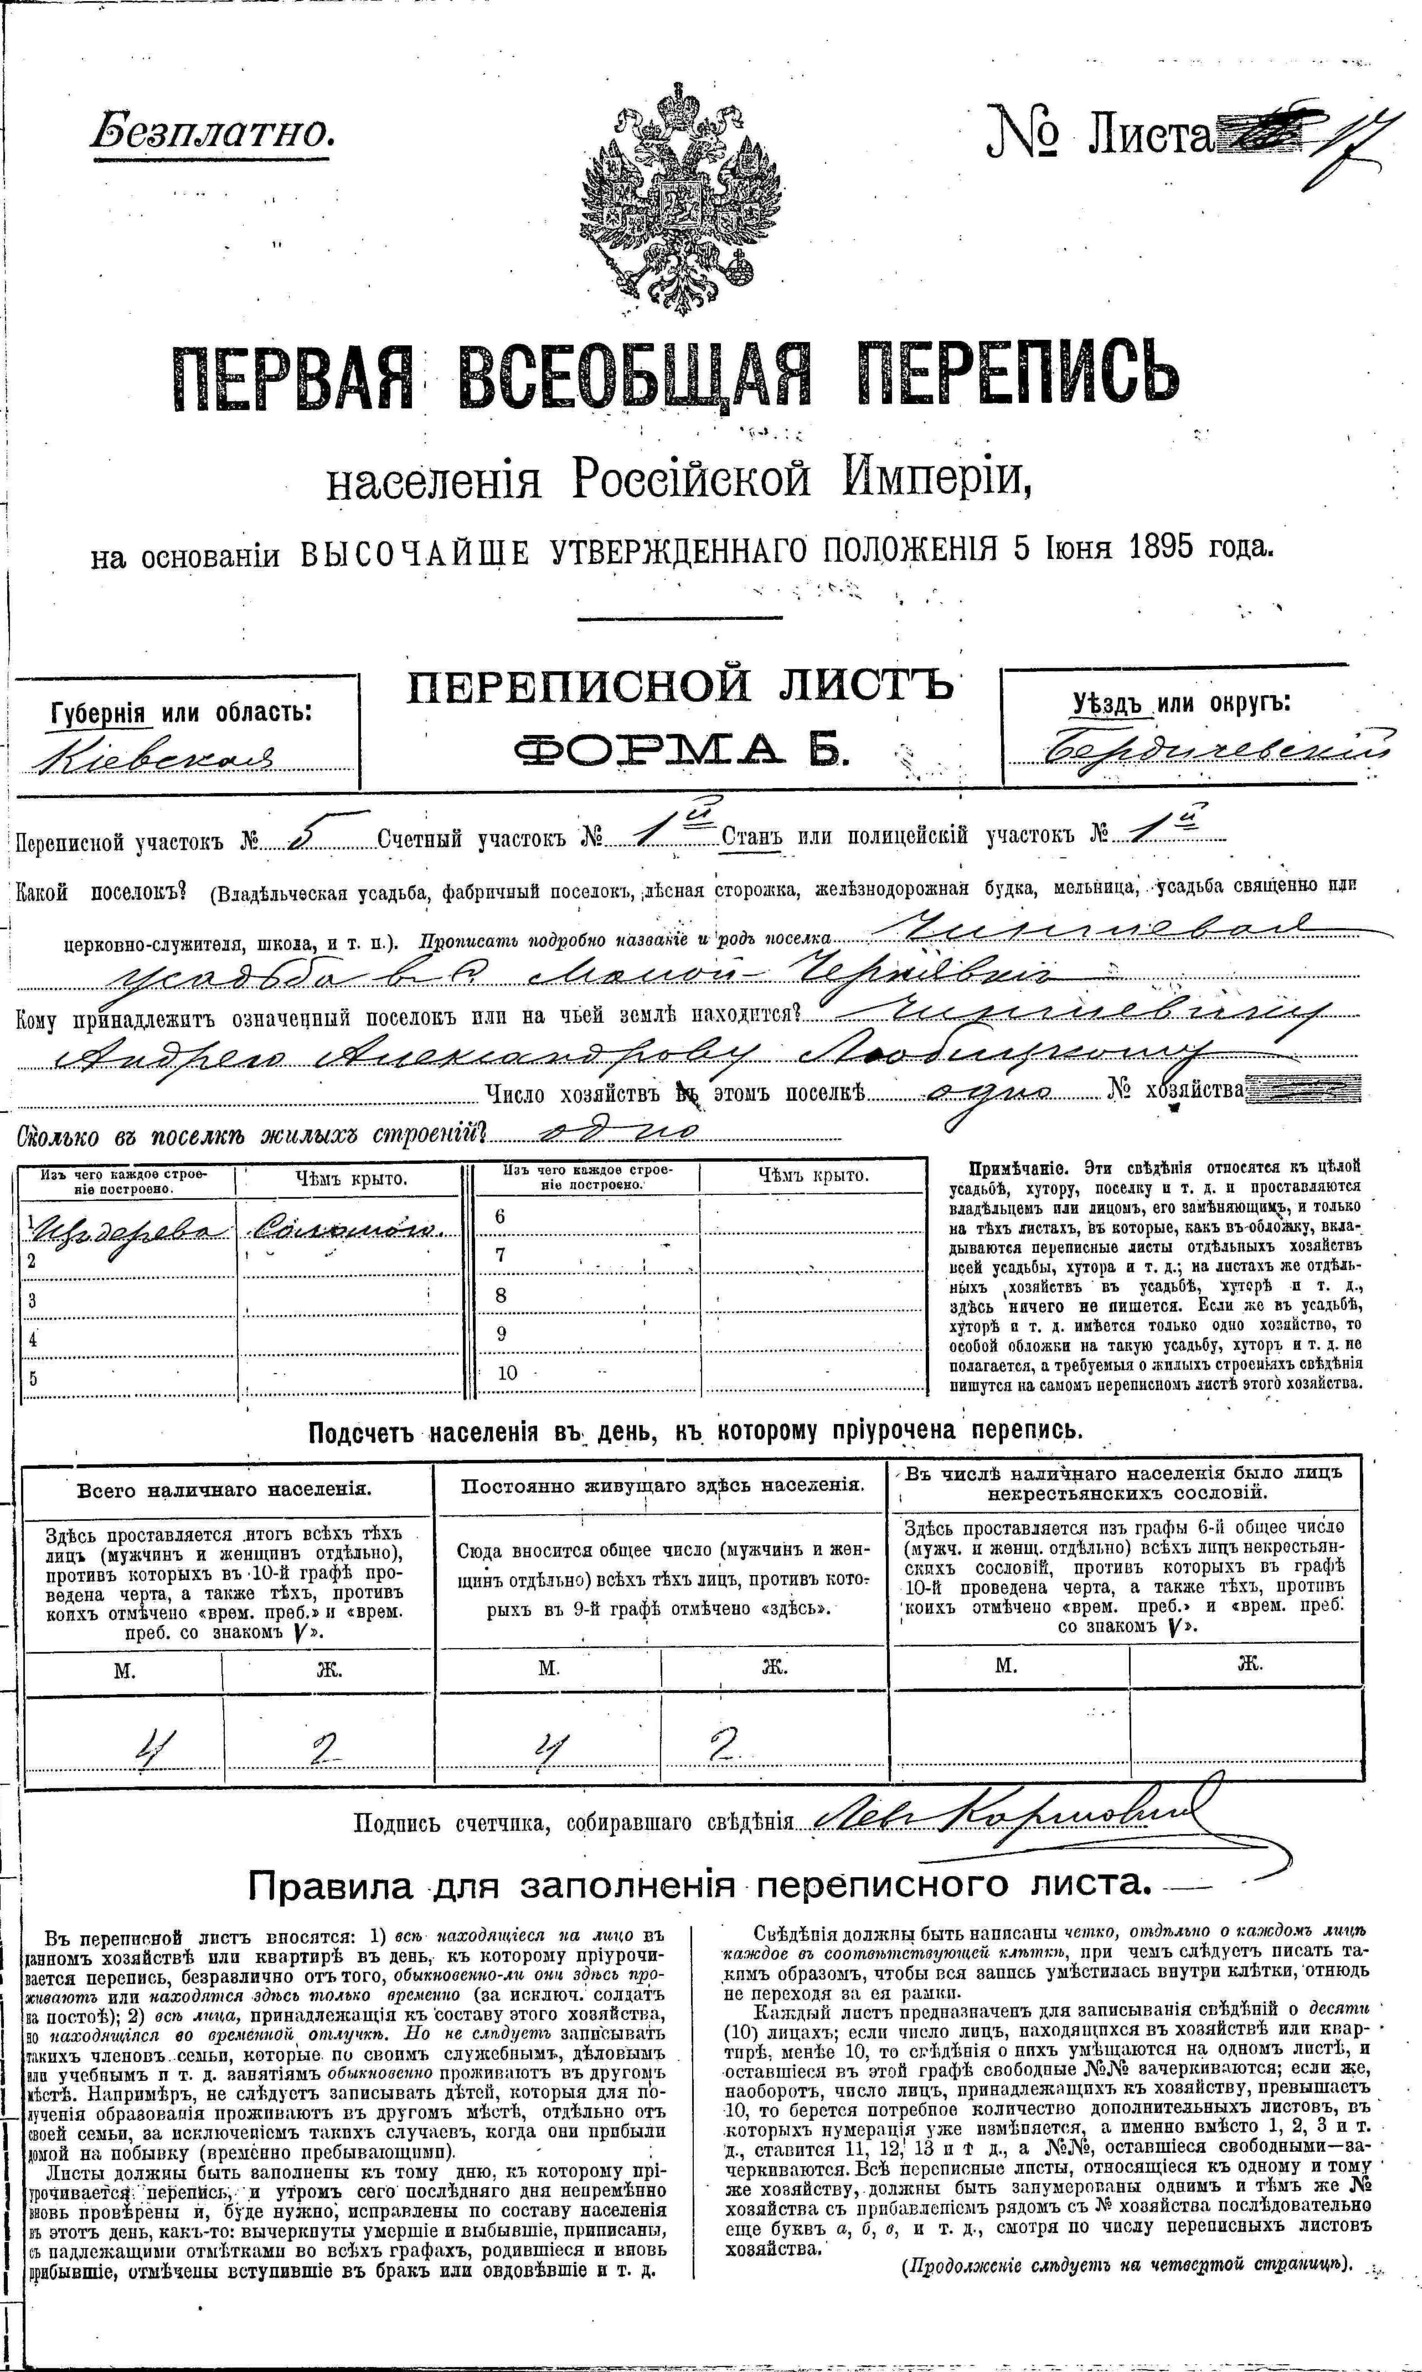 Безплатно.
№ Листа 17
ПЕРВАЯ ВСЕОБЩАЯ ПЕРЕПИСЬ
населенія Россійской Имперіи,
на основаніи ВЫСОЧАЙШЕ УТВЕРЖДЕННАГО ПОЛОЖЕНІЯ 5 Іюня 1895 года.
Губернія или область:
Кіевская
ПЕРЕПИСНОЙ ЛИСТЪ
ФОРМА Б.
Уѣздъ или округъ:
Бердичевскій
Переписной участокъ № 5 Счетный участокъ № 1й Станъ или полицейскій участокъ № 1й
Какой поселокъ? (Владѣльческая усадьба, фабричный поселокъ, лѣсная сторожка, желѣзнодорожная будка, мельница, усадьба священно или
церковно-служителя, школа, и т. п.). Прописать подробно названіе и родъ поселка Чиншевая
усадьба в с. Малой Чернявкѣ
Кому принадлежитъ означенный поселокъ или на чьей землѣ находится? Чиншевику
Андрею Александрову Любицкому
Число хозяйствъ въ этомъ поселкѣ одно № хозяйства
Сколько въ поселкѣ жилыхъ строеній? одно
Изъ чего каждое строе-
ніе построено.
Чѣмъ крыто.
Изъ чего каждое строе-
ніе построено.
Чѣмъ крыто.
1 Изъ дерева Соломою.
2
3
4
5
6
7
8
9
10
Примѣчаніе. Эти свѣдѣнія относятся къ цѣлой
усадьбѣ, хутору, поселку и т. д. и проставляются
владѣльцемъ или лицомъ, его замѣняющимъ, и только
на тѣхъ листахъ, въ которые, какъ въ обложку, вкла-
дываются переписные листы отдѣльныхъ хозяйствъ
всей усадьбы, хутора и т. д.; на листахъ же отдѣль-
ныхъ хозяйствъ въ усадьбѣ, хуторѣ и т. д.,
здѣсь ничего не пишется. Если же въ усадьбѣ,
хуторѣ и т. д. имѣется только одно хозяйство, то
особой обложки на такую усадьбу, хуторъ и т. д. не
полагается, а требуемыя о жилыхъ строеніяхъ свѣдѣнія
пишутся на самомъ переписномъ листѣ этого хозяйства.
Подсчетъ населенія въ день, къ которому пріурочена перепись.
Всего наличнаго населенія.
Здѣсь проставляется итогъ всѣхъ тѣхъ
лицъ (мужчинъ и женщинъ отдѣльно),
противъ которыхъ въ 10-й графѣ про-
ведена черта, а также тѣхъ, противъ
коихъ отмѣчено «врем. преб.» и «врем.
преб. со знакомъ V».
М. Ж.
4 2
Постоянно живущаго здѣсь населенія.
Сюда вносится общее число (мужчинъ и жен-
щинъ отдѣльно) всѣхъ тѣхъ лицъ, противъ кото-
рыхъ въ 9-й графѣ отмѣчено «здѣсь».
М. Ж.
4 2
Въ числѣ наличнаго населенія было лицъ
некрестьянскихъ сословій.
Здѣсь проставляется изъ графы 6-й общее число
(мужч. и женщ. отдѣльно) всѣхъ лицъ некрестьян-
скихъ сословій, противъ которыхъ въ графѣ
10-й проведена черта, а также тѣхъ, противъ
коихъ отмѣчено «врем. преб.» и «врем. преб.
со знакомъ V».
М. Ж.
Подпись счетчика, собиравшаго свѣдѣнія Левъ
Правила для заполненія переписного листа.
Въ переписной листъ вносятся: 1) всѣ находящіеся на лицо въ
данномъ хозяйствѣ или квартирѣ въ день, къ которому пріурочи-
вается перепись, безразлично отъ того, обыкновенно-ли они здѣсь про-
живаютъ или находятся здѣсь только временно (за исключ. солдатъ
на постоѣ); 2) всѣ лица, принадлежащія къ составу этого хозяйства,
но находящіяся во временной отлучкѣ. Но не слѣдуетъ записывать
такихъ членовъ семьи, которые по своимъ служебнымъ, дѣловымъ
или учебнымъ и т. д. занятіямъ обыкновенно проживаютъ въ другомъ
мѣстѣ. Напримѣръ, не слѣдуетъ записывать дѣтей, которыя для по-
лученія образованія проживаютъ въ другомъ мѣстѣ, отдѣльно отъ
своей семьи, за исключеніемъ такихъ случаевъ, когда они прибыли
домой на побывку (временно пребывающими).
Листы должны быть заполнены къ тому дню, къ которому прі-
урочивается перепись, и утромъ сего послѣдняго дня непремѣнно
вновь провѣрены и, буде нужно, исправлены по составу населенія
въ этотъ день, какъ-то: вычеркнуты умершіе и выбывшіе, приписаны,
съ надлежащими отмѣтками во всѣхъ графахъ, родившіеся и вновь
прибывшіе, отмѣчены вступившіе въ бракъ или овдовѣвшіе и т. д.
Свѣдѣнія должны быть написаны четко, отдѣльно о каждомъ лицѣ
каждое въ соотвѣтствующей клѣткѣ, при чемъ слѣдуетъ писать та-
кимъ образомъ, чтобы вся запись умѣстилась внутри клѣтки, отнюдь
не переходя за ея рамки.
Каждый листъ предназначенъ для записыванія свѣдѣній о десяти
(10) лицахъ; если число лицъ, находящихся въ хозяйствѣ или квар-
тирѣ, менѣе 10, то свѣдѣнія о нихъ умѣщаются на одномъ листѣ, и
оставшіеся въ этой графѣ свободные №№ зачеркиваются; если же,
наоборотъ, число лицъ, принадлежащихъ къ хозяйству, превышаетъ
10, то берется потребное количество дополнительныхъ листовъ, въ
которыхъ нумерація уже измѣняется, а именно вмѣсто 1, 2, 3 и т.
д., ставится 11, 12, 13 и т д., а №№, оставшіеся свободными—за-
черкиваются. Всѣ переписные листы, относящіеся къ одному и тому
же хозяйству, должны быть занумерованы однимъ и тѣмъ же №
хозяйства съ прибавленіемъ рядомъ съ № хозяйства послѣдовательно
еще буквъ а, б, в, и т. д., смотря по числу переписныхъ листовъ
хозяйства.
(Продолженіе слѣдуетъ на четвертой страницѣ).